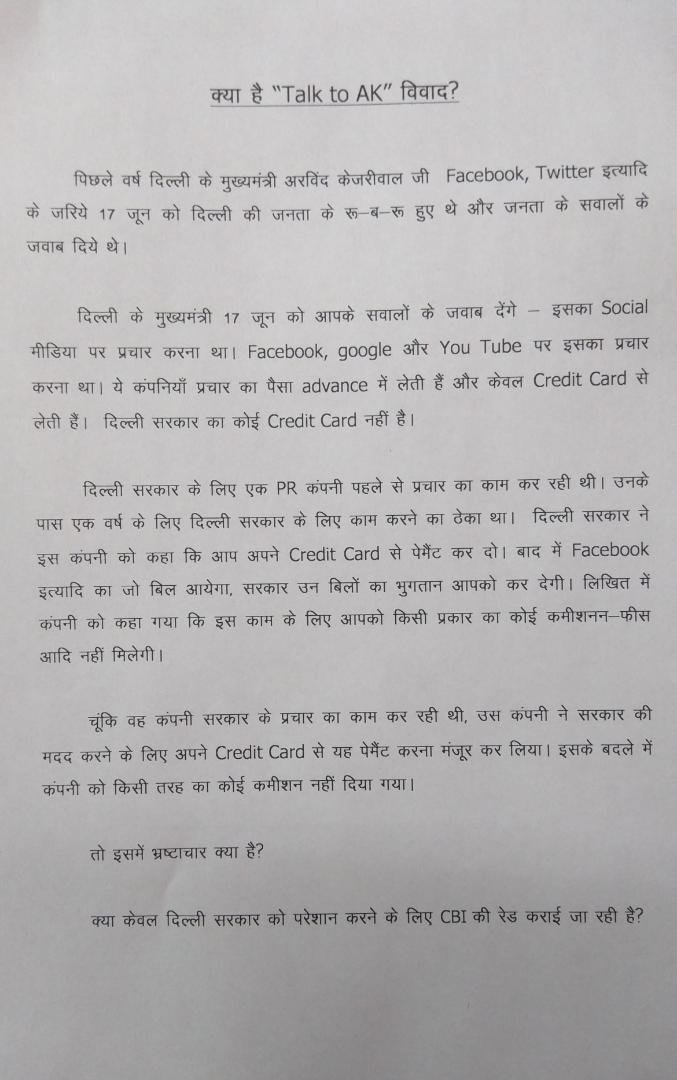 क्या है “Talk to AK” विवाद?
पिछले वर्ष दिल्ली के मुख्यमंत्री अरविंद केजरीवाल जी Facebook, Twitter इत्यादि
के जरिये 17 जून को दिल्ली की जनता के रू–ब–रू हुए थे और जनता के सवालों के
जवाब दिये थे।
दिल्ली के मुख्यमंत्री 17 जून को आपके सवालों के जवाब देंगे – इसका Social
मीडिया पर प्रचार करना था। Facebook, google और You Tube पर इसका प्रचार
करना था। ये कंपनियाँ प्रचार का पैसा advance में लेती हैं और केवल Credit Card से
लेती हैं। दिल्ली सरकार का कोई Credit Card नहीं है।
दिल्ली सरकार के लिए एक PR कंपनी पहले से प्रचार का काम कर रही थी। उनके
पास एक वर्ष के लिए दिल्ली सरकार के लिए काम करने का ठेका था। दिल्ली सरकार ने
इस कंपनी को कहा कि आप अपने Credit Card से पेमैंट कर दो। बाद में Facebook
इत्यादि का जो बिल आयेगा, सरकार उन बिलों का भुगतान आपको कर देगी। लिखित में
कंपनी को कहा गया कि इस काम के लिए आपको किसी प्रकार का कोई कमीशनन–फीस
आदि नहीं मिलेगी।
चूंकि वह कंपनी सरकार के प्रचार का काम कर रही थी, उस कंपनी ने सरकार की
मदद करने के लिए अपने Credit Card से यह पेमैंट करना मंजूर कर लिया। इसके बदले में
कंपनी को किसी तरह का कोई कमीशन नहीं दिया गया।
तो इसमें भ्रष्टाचार क्या है?
क्या केवल दिल्ली सरकार को परेशान करने के लिए CBI की रेड कराई जा रही है?